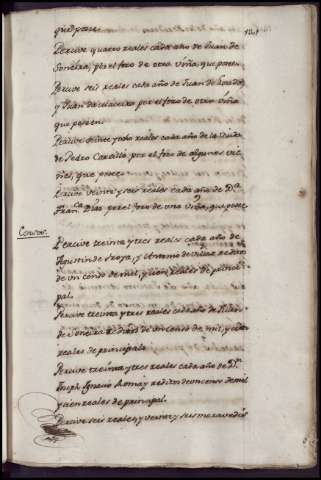 que posee.
Percive quatro reales cada año de Juan de
Soneira, por el foro de otra viña, que posee.
Percive seis reales cada año de Juan de
y Juan da por el foro de otra viña
que poseen.
Percive veinte y ocho reales cada año de la Viuda
de Pedro por el foro de algunas vi
ñas, que posee.
Percive veinte y seis reales cada año de Dn.
Franco. Dias por el foro de una viña, que posee.
Censos.
Percive treinta y tres reales cada año de
Agustin de y Antonio de Vilar reditos
de un censo de mil, y cien reales de princi
pal.
Percive treinta y tres reales cada año de
de Soneira reditos de un censo de mil, y cien
reales de principal.
Percive treinta y tres reales cada año de Dn.
Joseph Ignacio Romay reditos de un censo de mil
y cien reales de principal.
Percive seis reales, y veinte, y seis maravedis